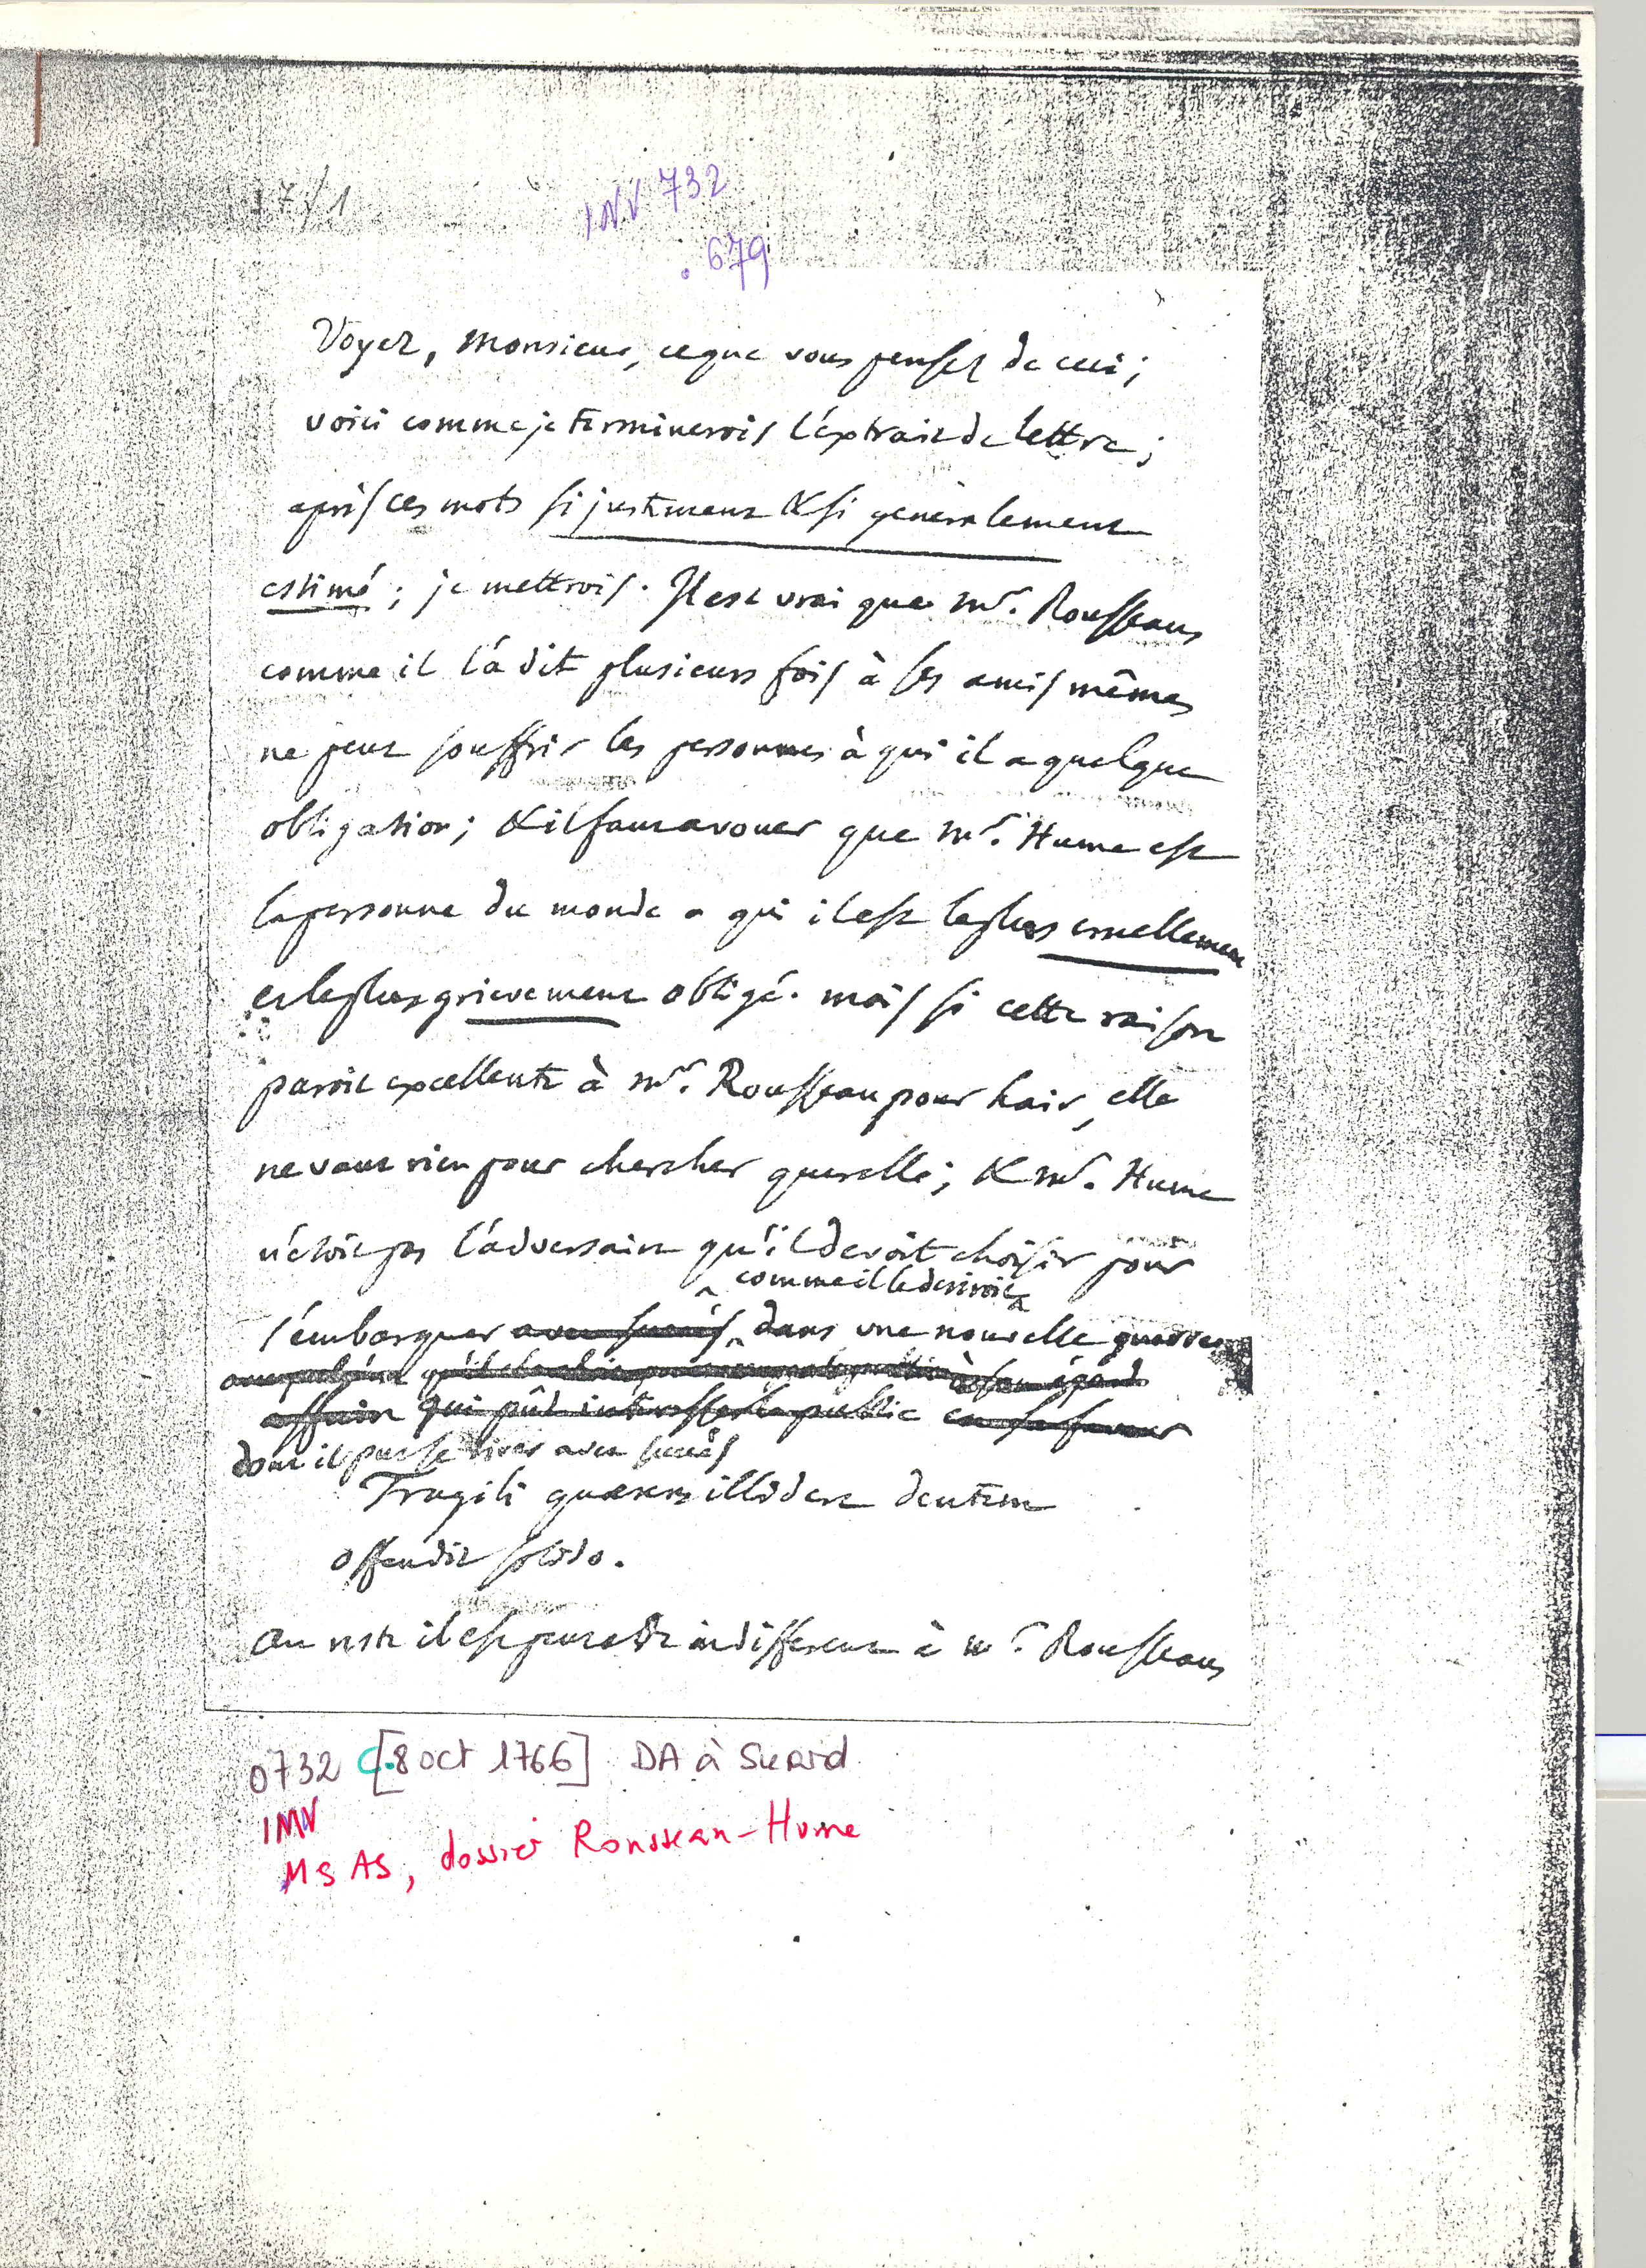 17/1
INV 732
. 679
Voyez, Monsieur, ce que vous pensez de ceci;
voici comme je terminerois l'éxtrait de lettre;
après ces mots si justement & si généralement
estimé; je mettrois. Il est vrai que Mr. Rousseau,
comme il l'a dit plusieurs fois à ses amis mêmes,
ne peut souffrir les personnes à qui il a quelque
obligation; & il faut avouer que Mr. Hume est
la personne du monde a qui il est le plus cruellement
et le plus grievement obligé. mais si cette raison
paroit excellente à Mr. Rousseau pour hair, elle
ne vaut rien pour chercher querelle; & Mr. Hume
n'étoit pas l'adversaire qu'il devoit choisir pour
comme il le desiroit
s'embarquer avec succès dans une nouvelle guerre
à son égard
affaire qui pût intéresser le public en sa faveur
dont il pût se tirer avec succès
Fragili quaerens illidere dentem
offendit solido.
Au reste il est peut etre indifferent à Mr. Rousseau,
0732 C. [8 oct 1766] DA à Suard
IMV
MS AS, dossier Rousseau-Hume